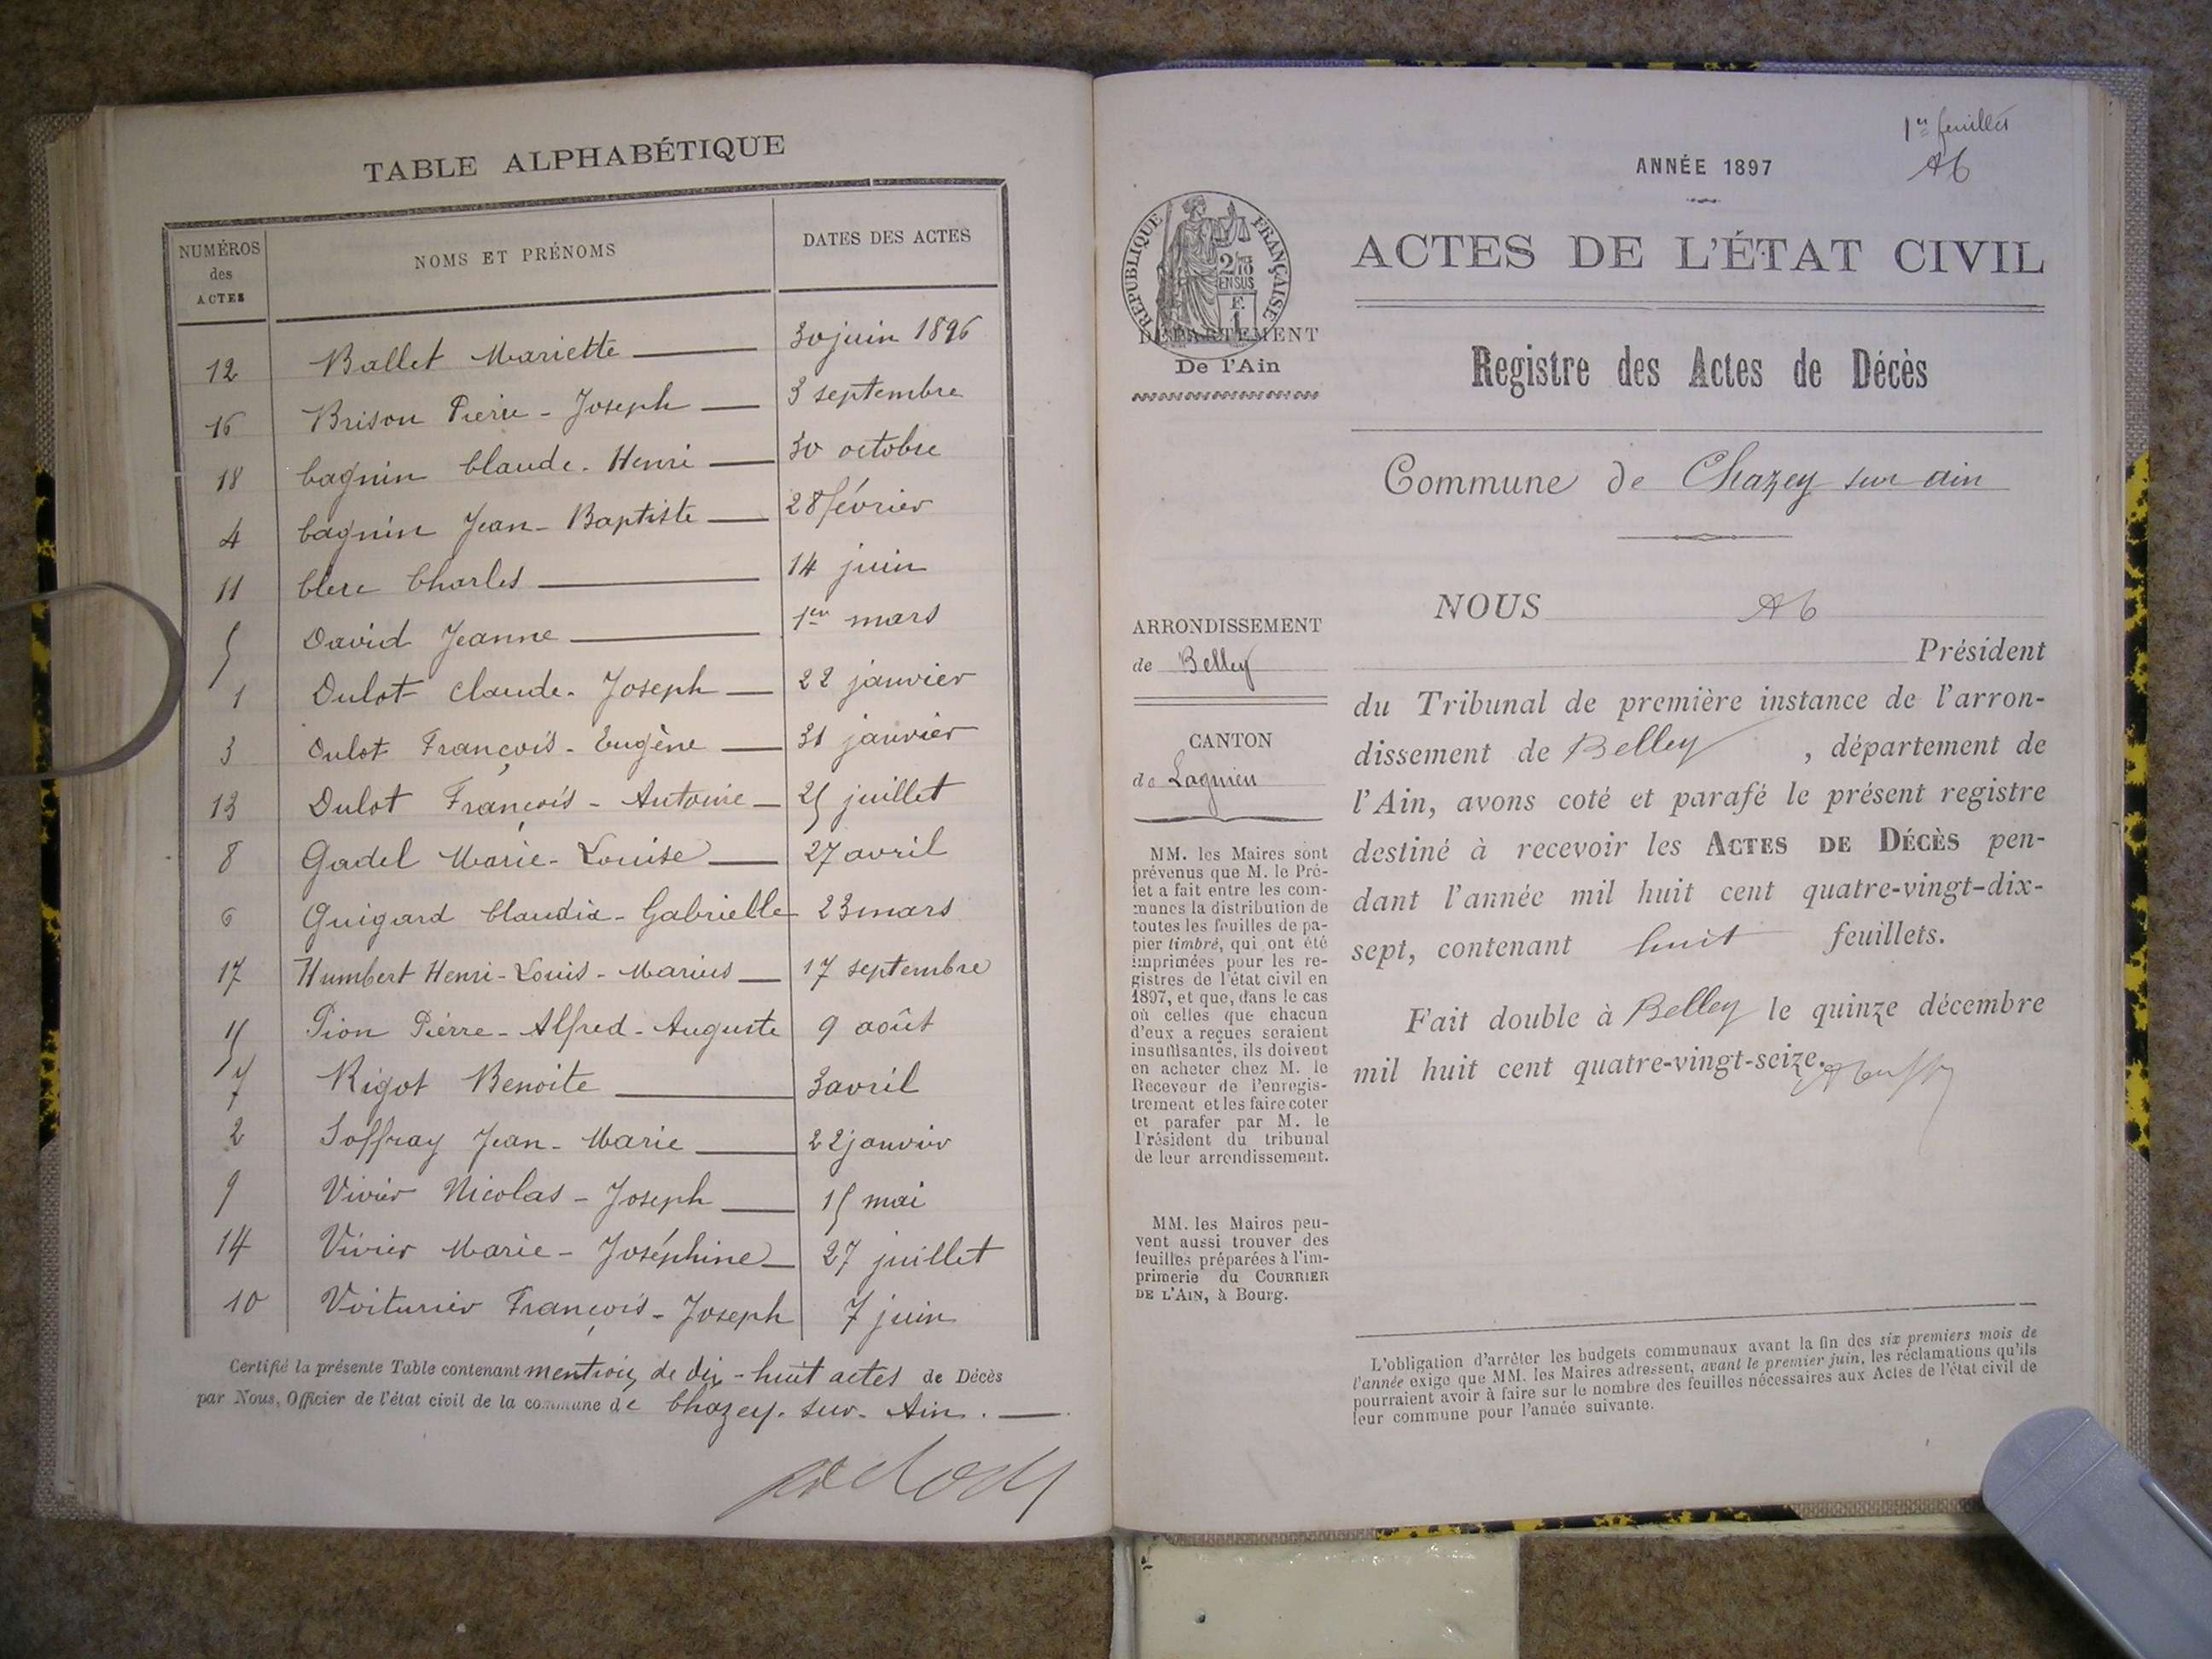 TABLE ALPHABÉTIQUE
NUMÉROS des ACTES
NOMS ET PRÉNOMS
DATES DES ACTES
12 Ballet Mariette 30 juin 1896
16 Brison Pierre-Joseph 3 septembre
18 Cagnin Claude-Henri 30 octobre
4 Cagnin Jean-Baptiste 28 février
11 Clerc Charles 14 juin
5 David Jeanne 1er mars
1 Dulot Claude-Joseph 22 janvier
3 Dulot François-Eugène 31 janvier
13 Dulot François-Antoine 25 juillet
8 Gadel Marie-Louise 27 avril
6 Guigard Claudia-Gabrielle 23 mars
17 Humbert Henri-Louis-Marius 17 septembre
15 Pion Pierre-Alfred-Auguste 9 août
7 Rigot Benoite 3 avril
2 Soffray Jean-Marie 22 janvier
9 Vivier Nicolas-Joseph 15 mai
14 Vivier Marie-Joséphine 27 juillet
10 Voiturier François-Joseph 7 juin
Certifié la présente Table contenant mention de dix-huit actes de Décès
par Nous, Officier de l'état civil de la commune de Chazey-sur-Ain.
1er feuillet
Ab
ANNÉE 1897
RÉPUBLIQUE FRANÇAISE
2/10
EN SUS
F.
1
DÉPARTEMENT
De l'Ain
ACTES DE L'ÉTAT CIVIL
Registre des Actes de Décès
Commune de Chazey sur ain
ARRONDISSEMENT
de Belley
CANTON
de Lagnieu
MM. les Maires sont
prévenus que M. le Pré-
fet a fait entre les com-
munes la distribution de
toutes les feuilles de pa-
pier timbré, qui ont été
imprimées pour les re-
gistres de l'état civil en
1897, et que, dans le cas
où celles que chacun
d'eux a reçues seraient
insuffisantes, ils doivent
en acheter chez M. le
Receveur de l'enregis-
trement et les faire coter
et parafer par M. le
Président du tribunal
de leur arrondissement.
MM. les Maires peu-
vent aussi trouver des
feuilles préparées à l'im-
primerie du COURRIER
DE L'AIN, à Bourg.
NOUS Ab
Président
du Tribunal de première instance de l'arron-
dissement de Belley, département de
l'Ain, avons coté et parafé le présent registre
destiné à recevoir les ACTES DE DÉCÈS pen-
dant l'année mil huit cent quatre-vingt-dix-
sept, contenant huit feuillets.
Fait double à Belley le quinze décembre
mil huit cent quatre-vingt-seize.
L'obligation d'arrêter les budgets communaux avant la fin des six premiers mois de
l'année exige que MM. les Maires adressent, avant le premier juin, les réclamations qu'ils
pourraient avoir à faire sur le nombre des feuilles nécessaires aux Actes de l'état civil de
leur commune pour l'année suivante.